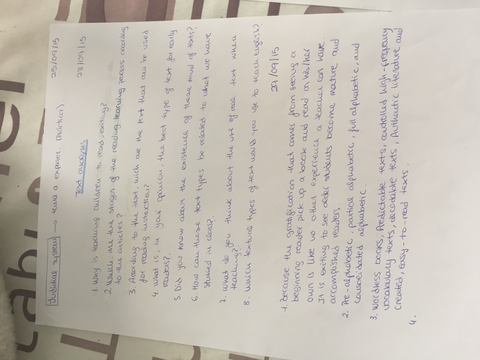 25/09/15
Jubilus symeal → have a exposer. (Political)
28/09/15
Text analysis
1. Why is teaching children to read, exciting?
2. Which are the stages of the reading learning process according to the article?
3. According to the text, wich are the text that can be used for reading instruction?
4. What is, in your opinion, the best type of text for early readers?
5. Did you know about the existence of these kind of texts?
6. How can these text types be related to what we have studied in class?
7. What do you think about the use of real text when teaching?
8. Which text and types of text would you use to teach english?
27/09/15
1. Because the gratification that comes from seeing a
beginning reader pick up a book and read on his/her
own is like no other experience a teacher can have.
It is exciting to see older students become mature and
accomplished readers.
2. Pre-alphabetic, partial alphabetic, full alphabetic, and
consolidated alphabetic.
3. Wordless books, Predictable texts, controlled high frequency
vocabulary texts, decodable texts, Authentic literature and
created, easy-to-read texts.
4.